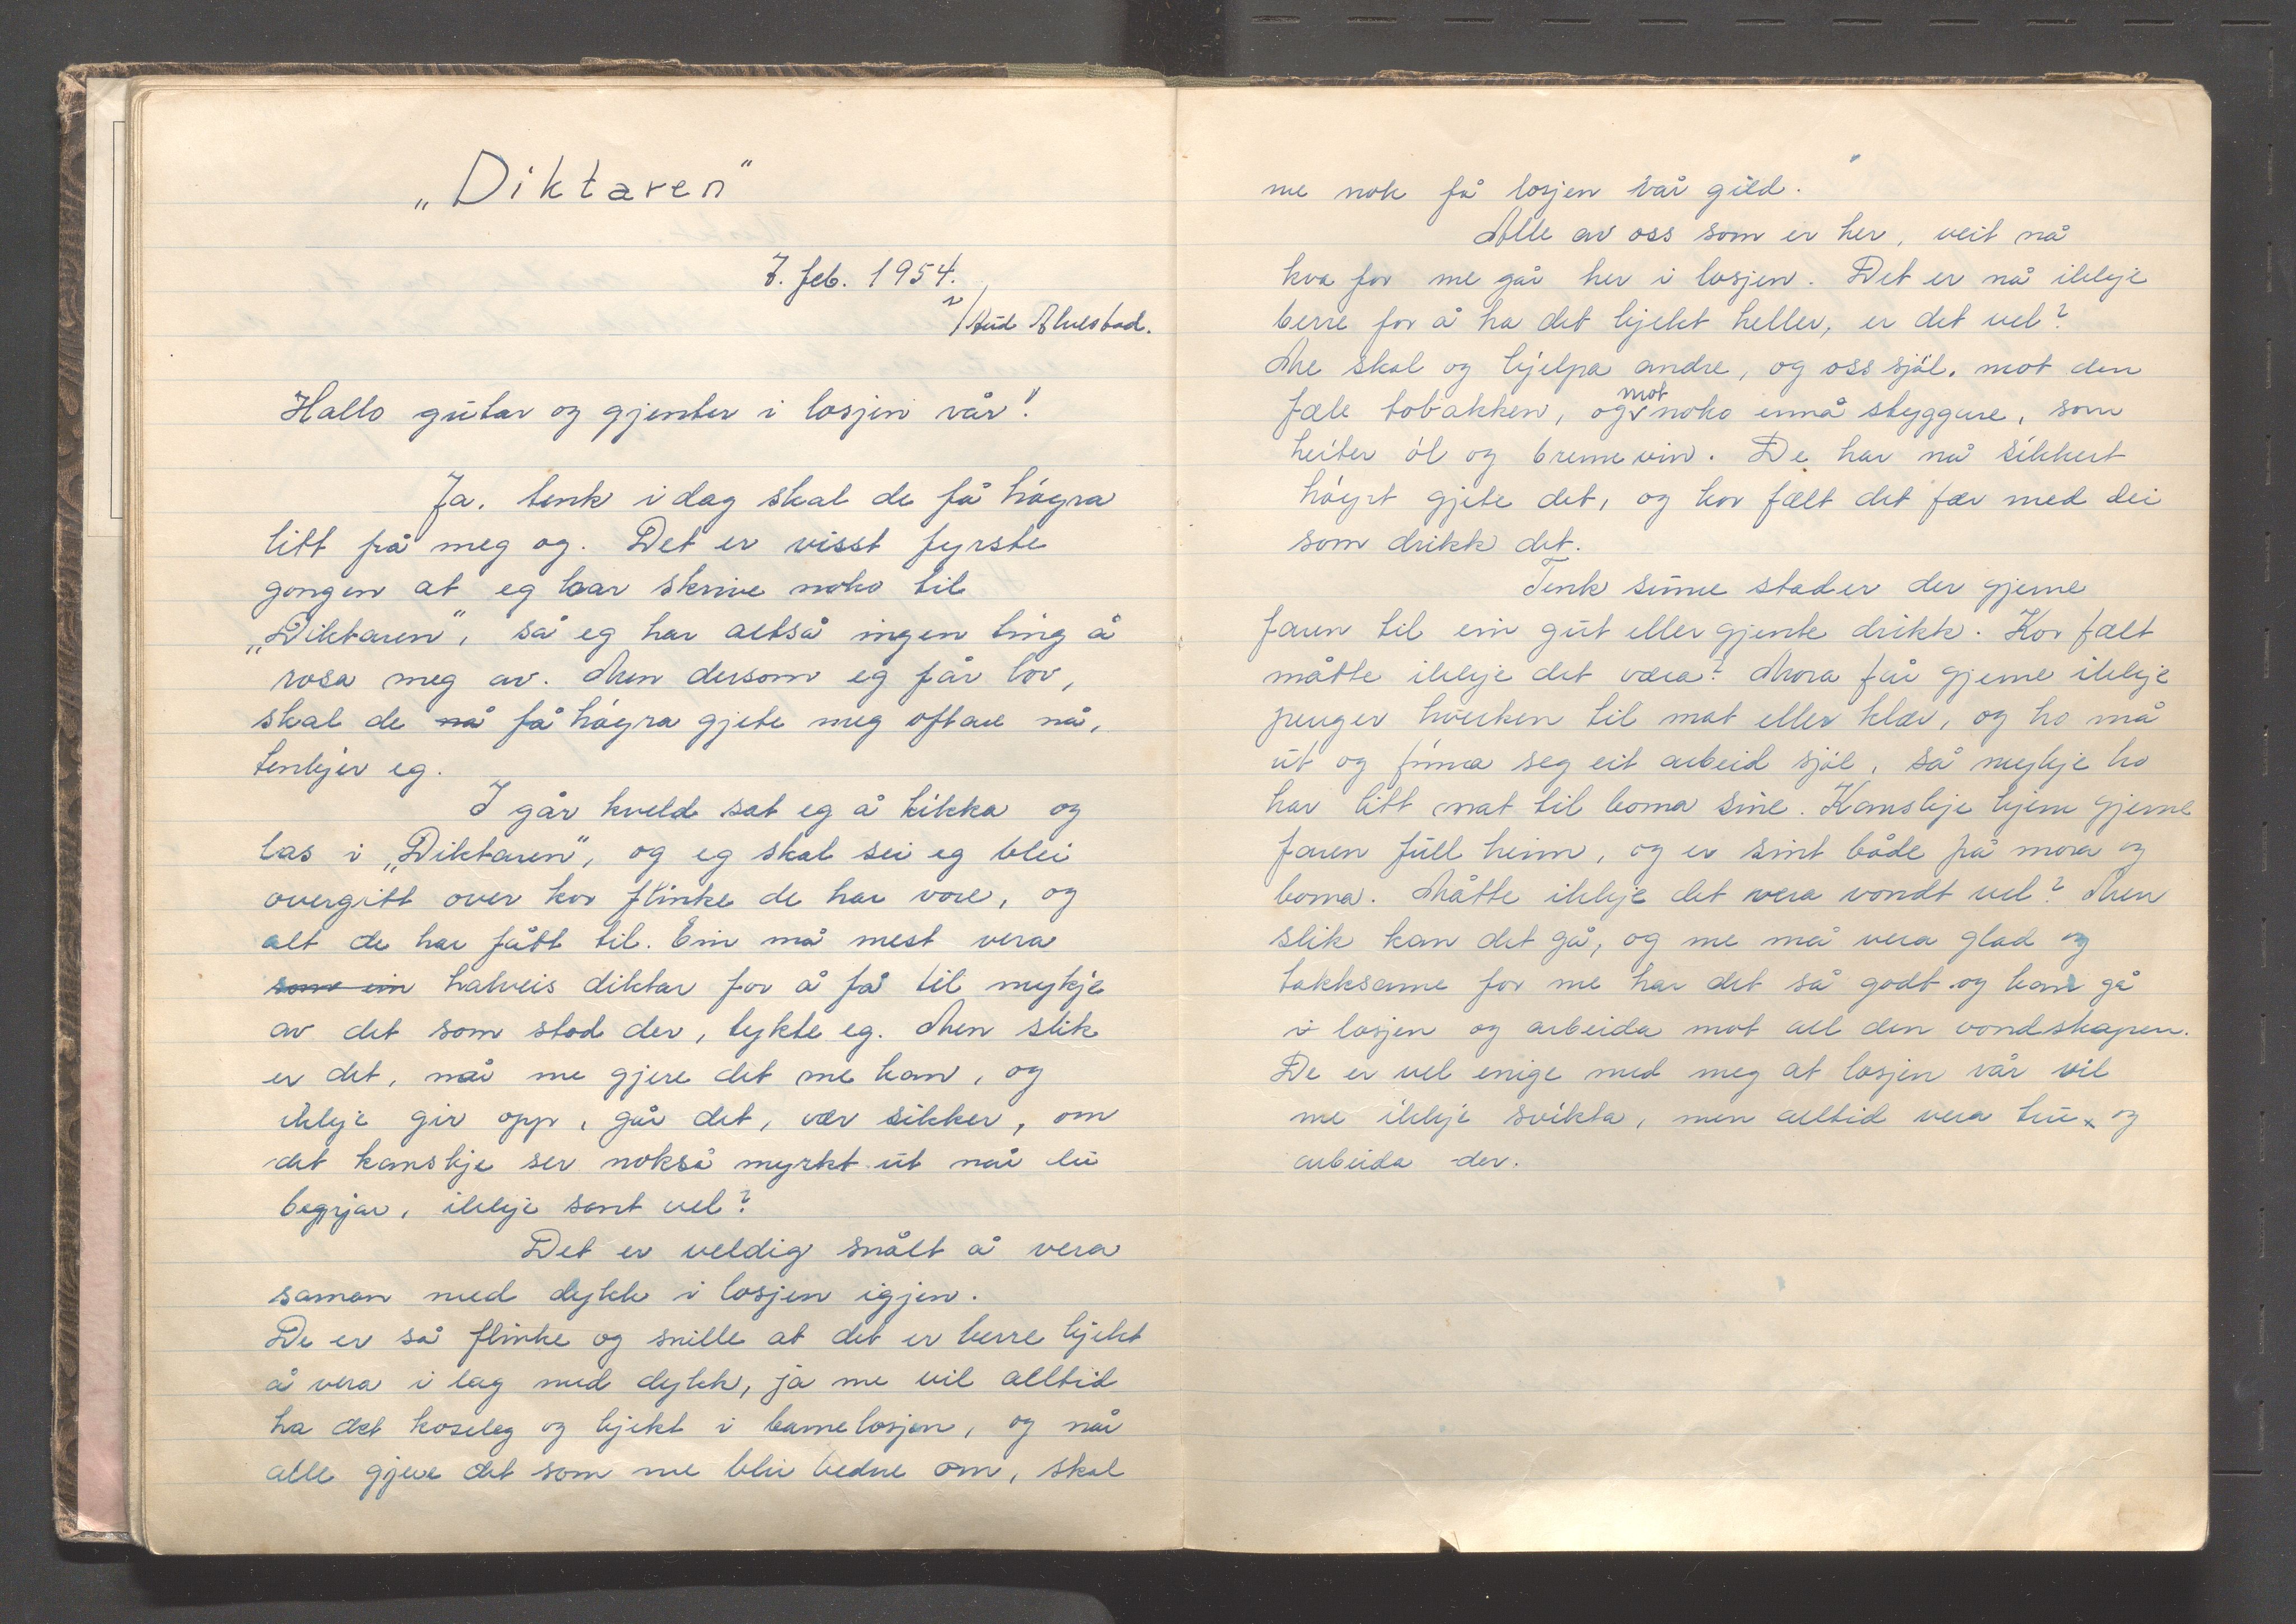 „Diktaren"
7. feb. 1954.
v/ Aud Alvestad.
Hallo gutar og gjenter i losjen vår!
Ja, tenk i dag skal de få høyra
litt frå meg og. Det er visst fyrste
gongen at eg har skrive noko til
„Diktaren", så eg har altså ingen ting å
rosa meg av. Men dersom eg får lov,
skal de nå få høyra gjete meg oftare nå,
tenkjer eg.
I går kveld sat eg å kikka og
las i „Diktaren", og eg skal sei eg blei
overgitt over kor flinke de har vore, og
alt de har fått til. Ein må mest vera
som ein halveis diktar for å få til mykje
av det som stod der, tykte eg. Men slik
er det, når me gjere det me kan, og
ikkje gir opp, går det, vær sikker, om
det kanskje ser nokså myrkt ut når du
begynjar, ikkje sant vel?
Det er veldig snålt å vera
saman med dykk i losjen igjen.
De er så flinke og snille at det er berre kjekt
å vera i lag med dykk, ja me vil alltid
ha det koseleg og kjekt i barnelosjen, og når
alle gjere det som me blir bedne om, skal
me nok få losjen vår gild.
Alle av oss som er her, veit nå
kva for me går her i losjen. Det er nå ikkje
berre for å ha det kjekt heller, er det vel?
Me skal og hjelpa andre, og oss sjøl, mot den
fæle tobakken, og mot noko ennå styggare, som
heiter øl og brennevin. De har nå sikkert
høyrt gjete det, og kor fælt det fær med dei
som drikk det.
Tenk sume stader der gjerne
faren til ein gut eller gjente drikk. Kor fælt
måtte ikkje det væra? Mora får gjerne ikkje
penger hverken til mat eller klær, og ho må
ut og finna seg eit arbeid sjøl, så mykje ho
har litt mat til borna sine. Kanskje kjem gjerne
faren full heim, og er sint både på mora og
borna. Måtte ikkje det vera vondt vel? Men
slik kan det gå, og me må vera glad og
takksame for me har det så godt og kan gå
i losjen og arbeida mot all den vondskapen.
De er vel enige med meg at losjen vår vil
me ikkje svikta, men alltid vera tru og
arbeida der.